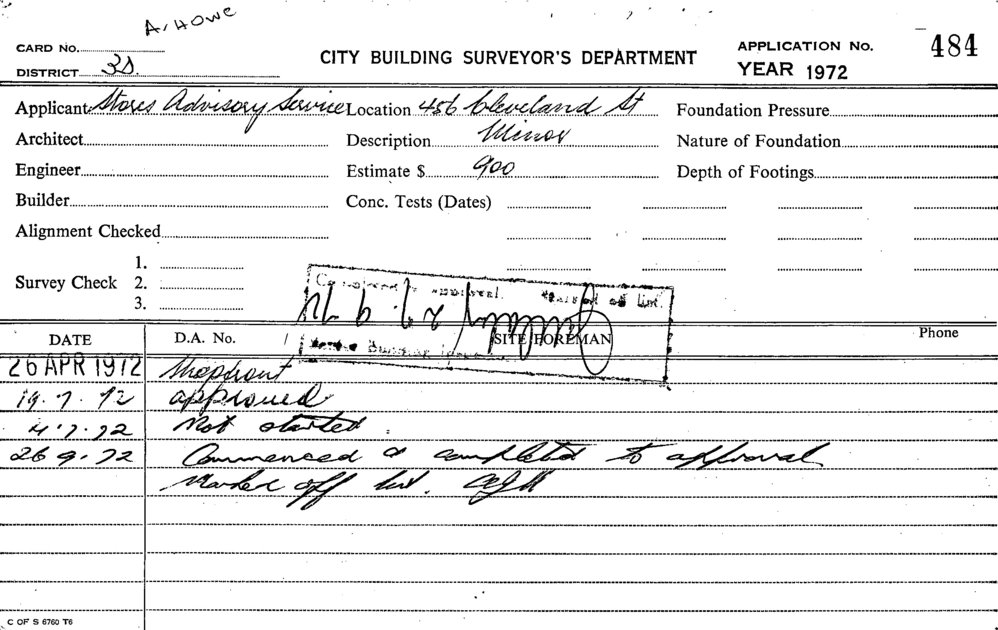 A. HOWE
CARD No.
DISTRICT 3S.
CITY BUILDING SURVEYOR'S DEPARTMENT
APPLICATION No. 484
YEAR 1972
Applicant Stores Advisory Service Location 456 Cleveland St Foundation Pressure
Architect Description Minor Nature of Foundation
Engineer Estimate $ 900 Depth of Footings
Builder Conc. Tests (Dates)
Alignment Checked
Survey Check 1.
2.
3.
Completed to approval. Marked off list.
27. 9. 72
DATE D.A. No. / SITE FOREMAN Phone
26 APR 1972 Shopfront
19.7.72 approved
4.7.72 Not started.
26 9.72 Commenced & completed to approval
Marked off list.
C OF S 6760 T6